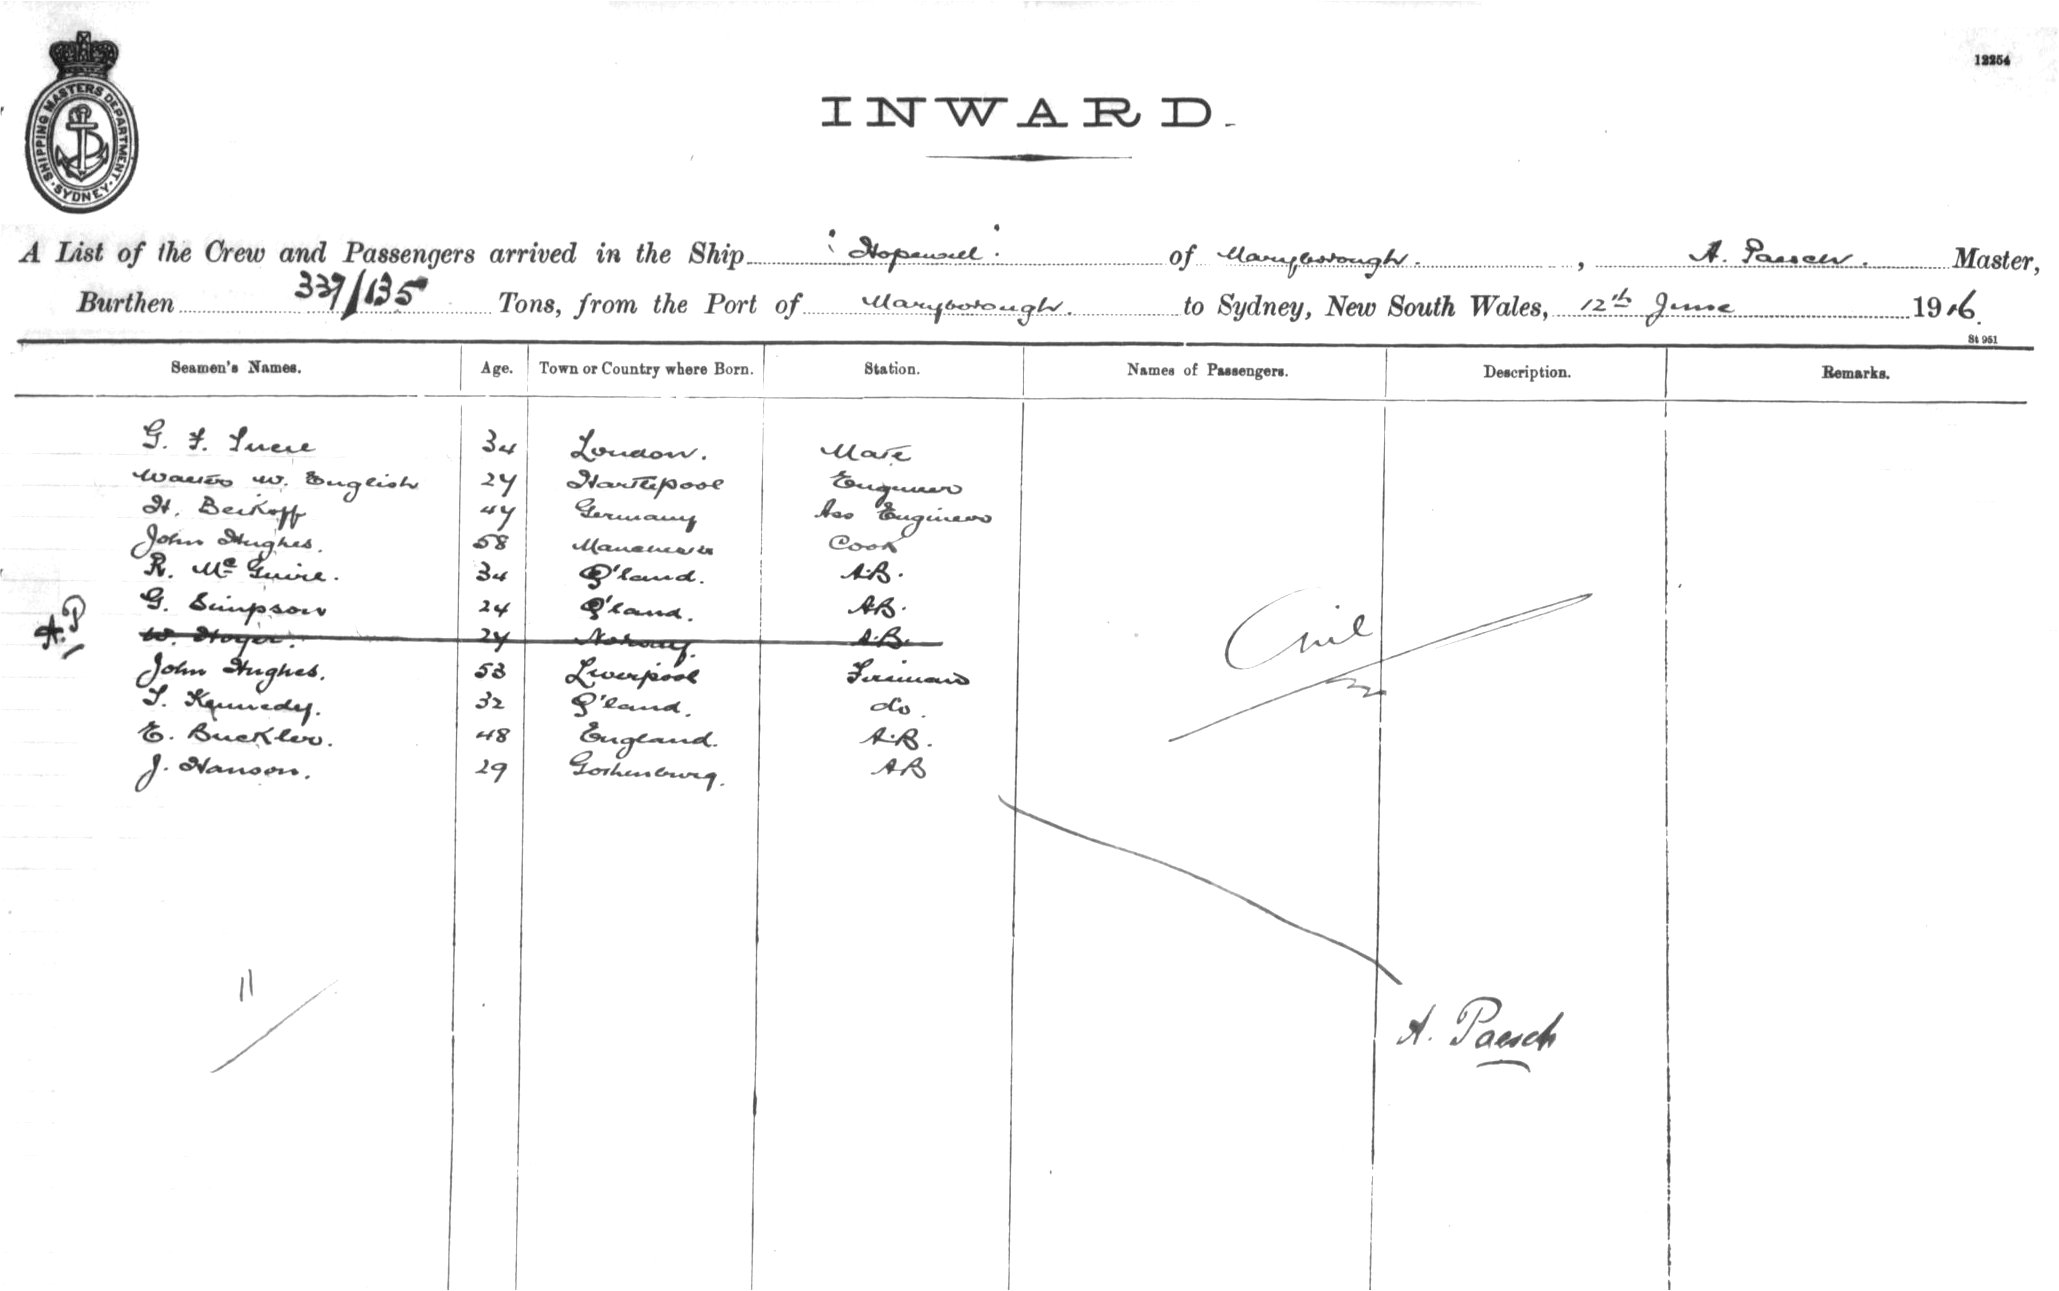 12254
SHIPPING MASTERS DEPARTMENT
SYDNEY
INWARD.
A List of the Crew and Passengers arrived in the Ship "Hopewell" of Maryborough. , A. Paesch. Master,
Burthen 337/135 Tons, from the Port of Maryborough. to Sydney, New South Wales, 12th June 1916.
St 951
Seamen's Names. Age. Town or Country where Born. Station. Names of Passengers. Description. Remarks.
G. F. 34 London. Mate
Walter W. English 27 Hartlepool Engineer
H. Beikoff 47 Germany Ass Engineer
John Hughes. 58 Manchester Cook
R. McGuire. 34 Q'land. A.B.
G. Simpson 24 Q'land. AB.
A.P W. Hoyer. 27 Norway. A.B.
John Hughes. 53 Liverpool Fireman
T. Kennedy. 32 Q'land. do.
E. Buckler. 48 England. A.B.
J. Hanson. 29 Gothenburg. AB
nil
11
A. Paesch